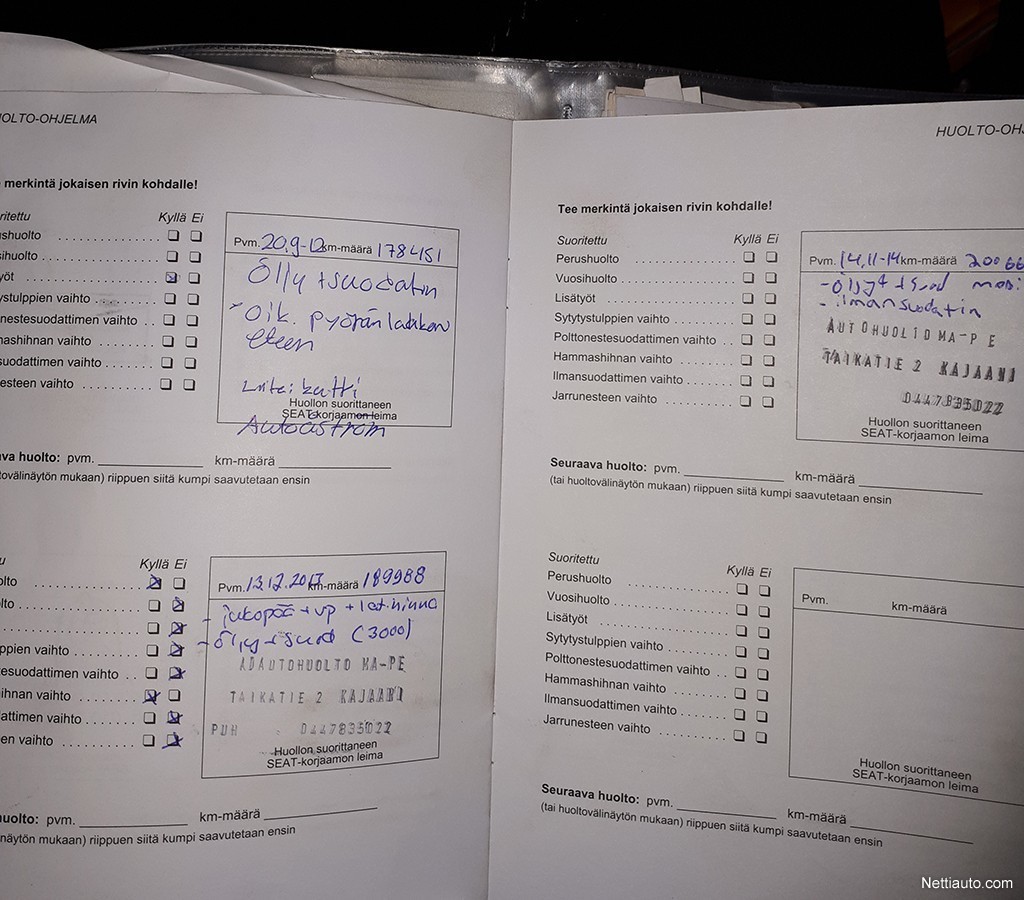 OLTO-OHJELMA
e merkintä jokaisen rivin kohdalle!
ritettu Kyllä Ei
shuolto
sihuolto
yöt
ystulppien vaihto
nestesuodattimen vaihto
nashihnan vaihto
suodattimen vaihto
esteen vaihto
Pvm. 20.9-12 km-määrä 178451
Öljy + suodatin
- Oik. pyörän laakeri
eteen
Huollon suorittaneen
SEAT-korjaamon leima
ava huolto: pvm. km-määrä
tovälinäytön mukaan) riippuen siitä kumpi saavutetaan ensin
u Kyllä Ei
olto
olto
ppien vaihto
tesuodattimen vaihto
ihnan vaihto
attimen vaihto
en vaihto
Pvm. 13.12.2013 km-määrä 189988
- jakopää + vp + lat.hihna
- öljy + suod (3000)
ADAUTOHUOLTO MA-PE
TAIKATIE 2 KAJAANI
PUH 0447835022
Huollon suorittaneen
SEAT-korjaamon leima
huolto: pvm. km-määrä
inäytön mukaan) riippuen siitä kumpi saavutetaan ensin
HUOLTO-OHJ
Tee merkintä jokaisen rivin kohdalle!
Suoritettu Kyllä Ei
Perushuolto
Vuosihuolto
Lisätyöt
Sytytystulppien vaihto
Polttonestesuodattimen vaihto
Hammashihnan vaihto
Ilmansuodattimen vaihto
Jarrunesteen vaihto
Pvm. 14.11-14 km-määrä 20066
- öljyt + suod mobi
- ilmansuodatin
AUTOHUOLTO MA-PE
TAIKATIE 2 KAJAANI
0447835022
Huollon suorittaneen
SEAT-korjaamon leima
Seuraava huolto: pvm. km-määrä
(tai huoltovälinäytön mukaan) riippuen siitä kumpi saavutetaan ensin
Suoritettu Kyllä Ei
Perushuolto
Vuosihuolto
Lisätyöt
Sytytystulppien vaihto
Polttonestesuodattimen vaihto
Hammashihnan vaihto
Ilmansuodattimen vaihto
Jarrunesteen vaihto
Pvm. km-määrä
Huollon suorittaneen
SEAT-korjaamon leima
Seuraava huolto: pvm. km-määrä
(tai huoltovälinäytön mukaan) riippuen siitä kumpi saavutetaan ensin
Nettiauto.com